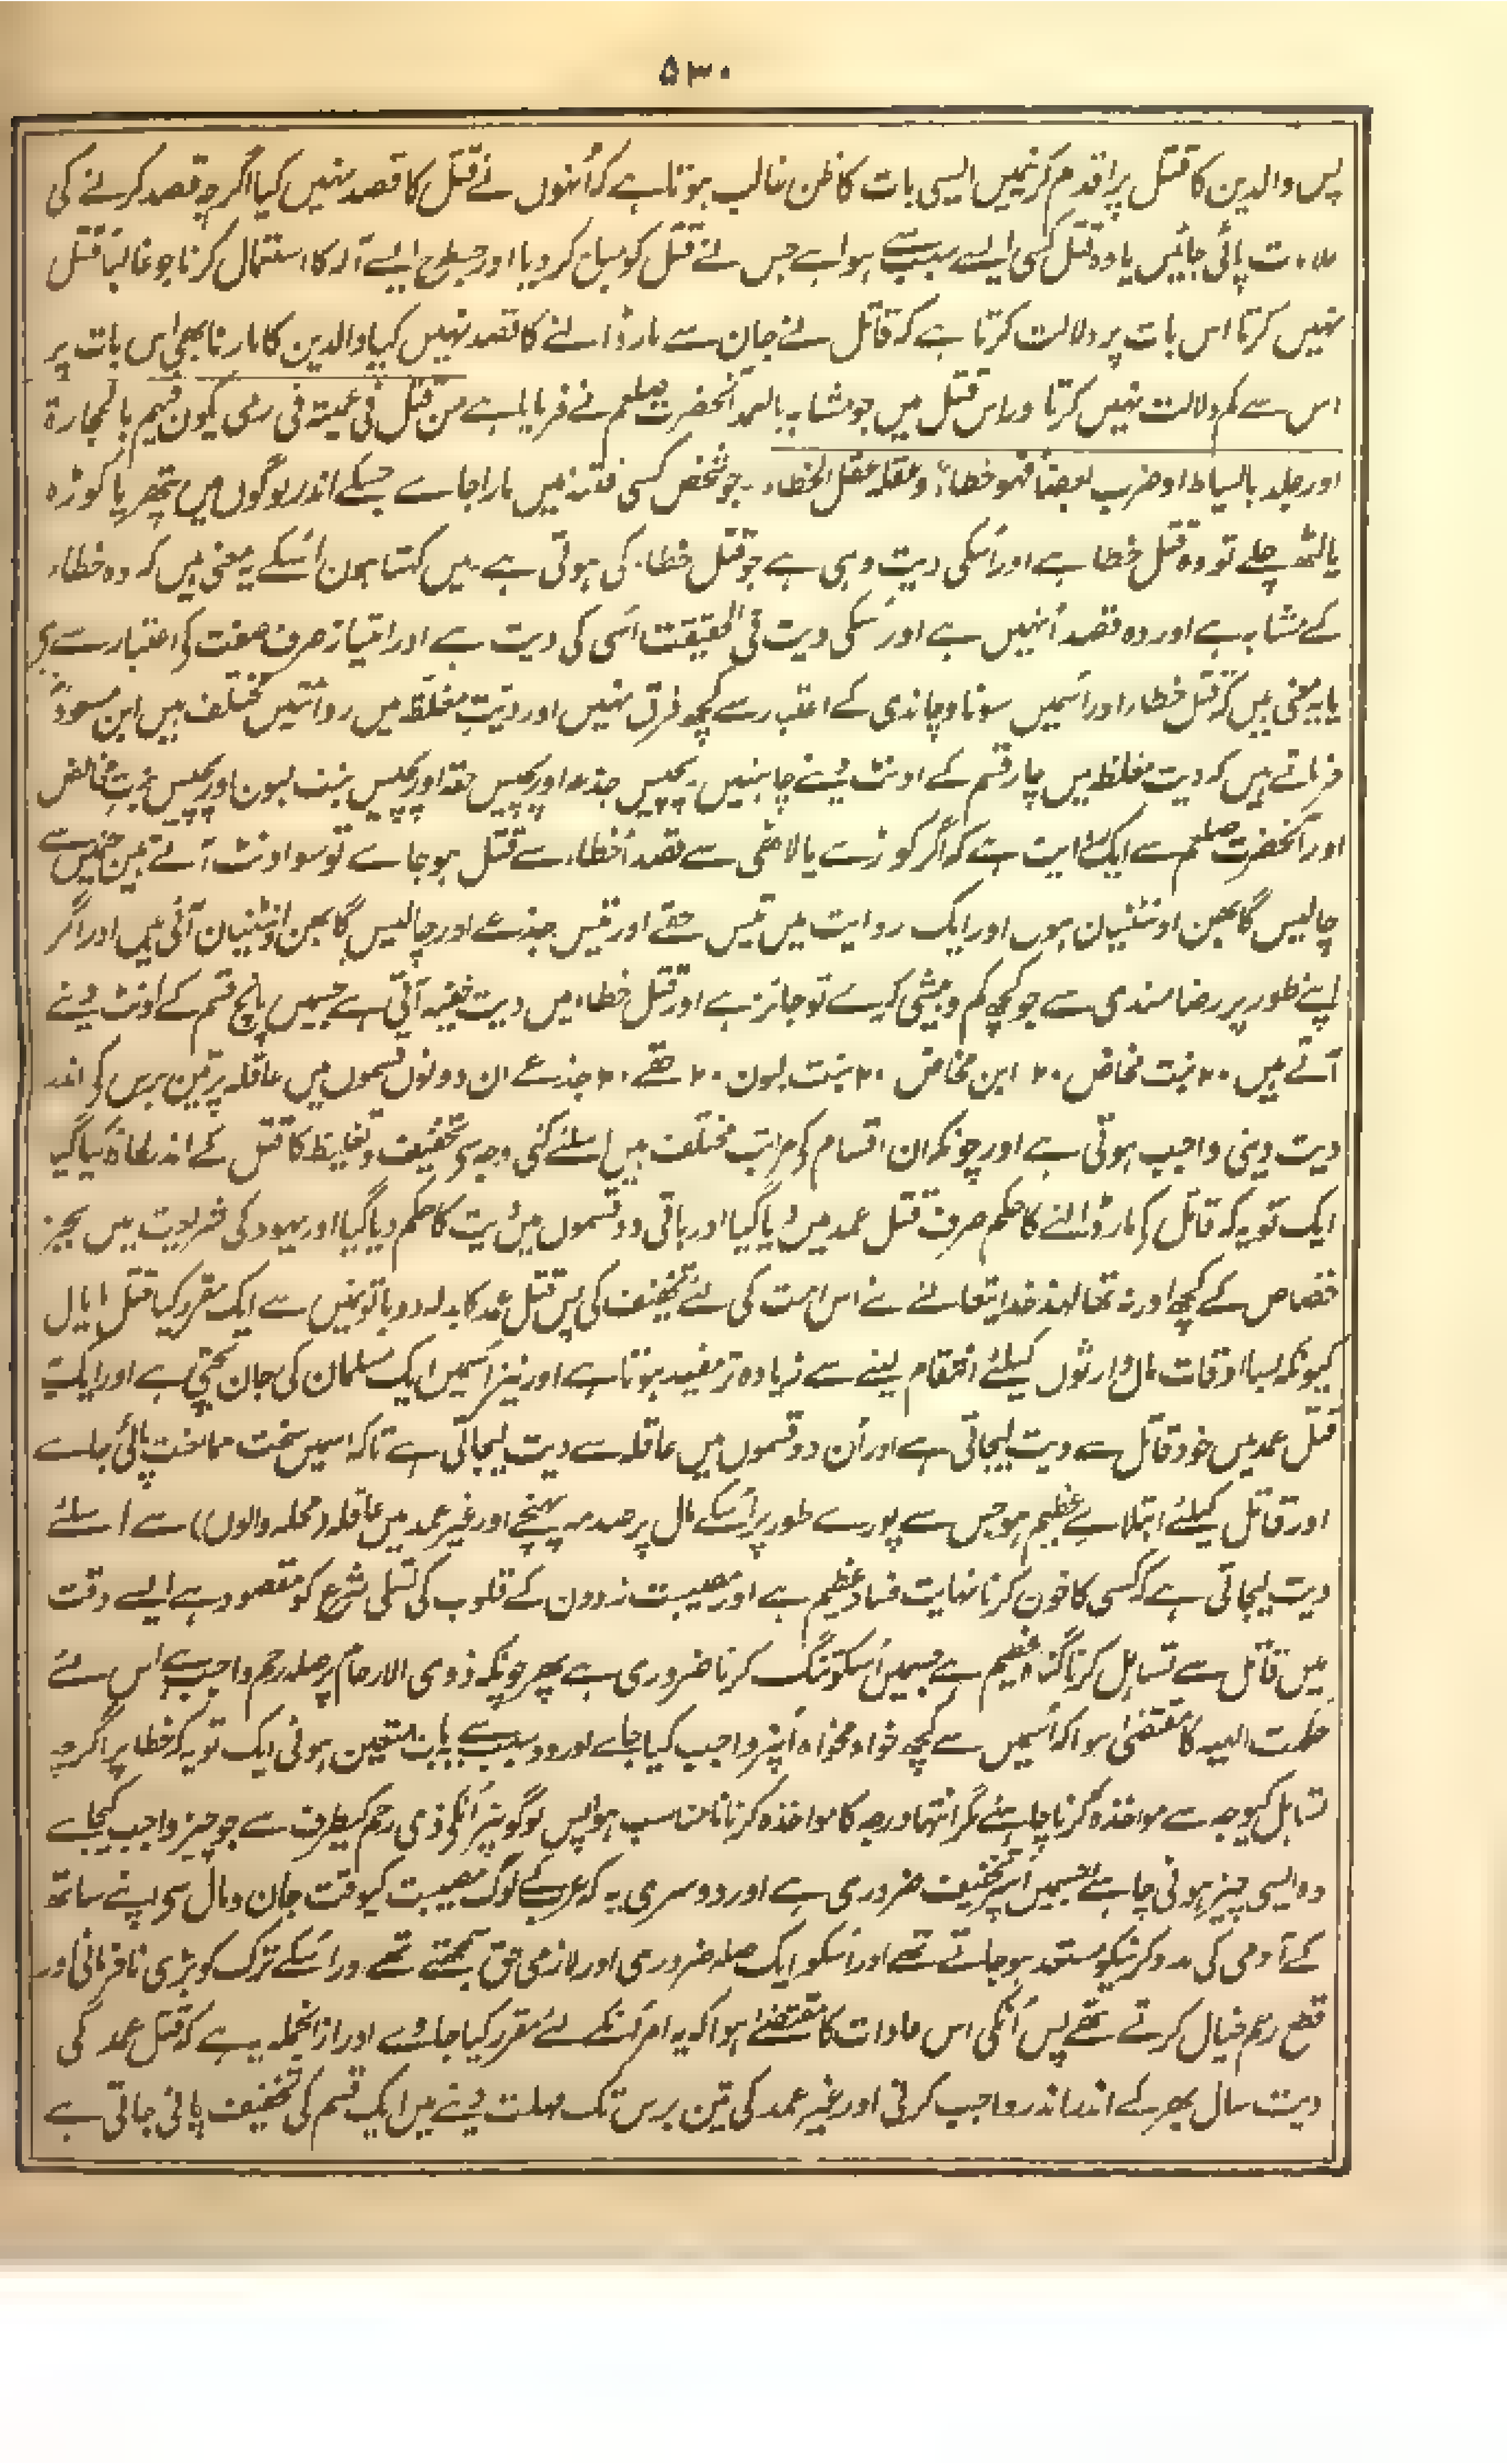 ۵۳۰
پس والدین کا قتل پر اقدام کرنیمیں ایسی بات کا ظن غالب ہوتا ہے کہ اُنہوں نے قتل کا قصد نہیں کیا اگرچہ قصد کرنے کی
علامات پائی جائیں یا وہ قتل کسی ایسے سبب سے ہوا ہے جس نے قتل کو مباح کر دیا اور جسطرح ایسے آلہ کا استعمال کرنا جو غالباً قتل
نہیں کرتا اس بات پر دلالت کرتا ہے کہ قاتل نے جان سے مار ڈالنے کا قصد نہیں کیا والدین کا مارنا بھی اس بات پر
اس سے کم دلالت نہیں کرتا اور اس قتل میں جو مشابہ بالعمد آنحضرت صلعم نے فرمایا ہے من قتل فی عمیۃ فی رمی یکون فیہم بالحجارۃ
اور جلد بالسیاط او ضرب بعصاً فہو خطاءٌ و عقلہ عقل الخطاء ۔ جو شخص کسی فتنہ میں مارا جاے جسکے اندر لوگوں میں پتھر یا کوڑہ
یا لٹھ چلے تو وہ قتل خطا ہے اور اُسکی دیت وہی ہے جو قتل خطاء کی ہوتی ہے میں کہتا ہوں اُسکے یہ معنی ہیں کہ وہ خطاء
کے مشابہ ہے اور وہ قصداً نہیں ہے اور اُسکی دیت فی الحقیقت اُسی کی دیت ہے اور امتیاز صرف صفت کے اعتبار سے ہے
یا یہ معنی ہیں کہ قتل خطاء اور اُسمیں سونا و چاندی کے اعتبار سے کچھ فرق نہیں اور دیت مغلظہ میں روائتیں مختلف ہیں ابن مسعودؓ
فرماتے ہیں کہ دیت مغلظہ میں چار قسم کے اونٹ دینے چاہئیں ۔ پچیس جذعہ اور پچیس حقہ اور پچیس بنت لبون اور پچیس بنت مخاض
اور آنحضرت صلعم سے ایک روایت ہے کہ اگر کوڑے یا لاٹھی سے قصداً خطاء سے قتل ہو جاے تو سو اونٹ آتے ہیں جنمیں سے
چالیس گابھن اونٹنیاں ہوں اور ایک روایت میں تیس حقے اور تیس جذعے اور چالیس گابھن اونٹنیاں آئی ہیں اور اگر
اپنے طور پر رضا مندی سے جو کچھ کم و بیشی کرے تو جائز ہے اور قتل خطاء میں دیت خفیفہ آتی ہے جسمیں پانچ قسم کے اونٹ دینے
آتے ہیں ۲۰ بنت مخاض ۲۰ ابن مخاض ۲۰ بنت لبون ۲۰ حقے ۲۰ جذعے ان دونوں قسموں میں عاقلہ پر تین برس کے اندر
دیت دینی واجب ہوتی ہے اور چونکہ ان اقسام کے مراتب مختلف ہیں اسلئے کئی وجہ سے تخفیف و تغلیظ کا قتل کے اندر لحاظ کیا گیا
ایک تو یہ کہ قاتل کے مار ڈالنے کا حکم صرف قتل عمد میں دیا گیا اور باقی دو قسموں میں دیت کا حکم دیا گیا اور یہود کی شریعت میں بجز
قصاص کے کچھ اور نہ تھا لہذا خدایتعالےٰ نے اس امت کی لئے تخفیف کی پس قتل عمد کا بدلہ دو باتونمیں سے ایک مقرر کیا قتل یا مال
کیونکہ بسا اوقات مال وارثوں کیلئے انتقام لینے سے زیادہ تر مفید ہوتا ہے اور نیز اُسمیں ایک مسلمان کی جان بچتی ہے اور ایک یہ
قتل عمد میں خود قاتل سے دیت لیجاتی ہے اور اُن دو قسموں میں عاقلہ سے دیت لیجاتی ہے تاکہ اسمیں سخت ممانعت پائی جاے
اور قاتل کیلئے ابتلاے عظیم ہو جس سے پورے طور پر اُسکے مال پر صدمہ پہنچے اور غیر عمد میں عاقلہ (محلہ والوں) سے اسلئے
دیت لیجاتی ہے کہ کسی کا خون کرنا نہایت فساد عظیم ہے اور مصیبت زدوں کے قلوب کی تسلی شرع کو مقصود ہے ایسے وقت
میں قاتل سے تساہل کرنا گناہ عظیم ہے جسمیں اُسکو تنگ کرنا ضروری ہے پھر چونکہ ذوی الارحام پر صلہ رحم واجب ہے اس لئے
حکمت الہیہ کا مقتضیٰ ہوا کہ اُسمیں سے کچھ خواہ مخواہ اُنپر واجب کیا جاے اور دو سبب سے یہ بات متعین ہوئی ایک تو یہ کہ خطا پر اگرچہ
تساہل کیوجہ سے مواخذہ کرنا چاہئے مگر انتہا درجہ کا مواخذہ کرنا نامناسب ہوا پس لوگونپر اُنکے ذی رحم کیطرف سے جو چیز واجب کیجاے
وہ ایسی چیز ہونی چاہئے جسمیں اُنپر تخفیف ضروری ہے اور دوسری یہ کہ عرب کے لوگ مصیبت کیوقت جان و مال سے اپنے ساتھ
کے آدمی کی مدد کرنیکو مستعد ہو جاتے تھے اور اُسکو ایک صلہ ضروری اور لازمی حق سمجھتے تھے اور اُسکے ترک کو بڑی نافرمانی اور
قطع رحم خیال کرتے تھے پس اُنکی اس عادات کا مقتضےٰ ہوا کہ یہ امر اُنکے لئے مقرر کیا جاوے اور ازانجملہ یہ ہے کہ قتل عمد کی
دیت سال بھر کے اندر اندر واجب کرنی اور غیر عمد کی تین برس تک مہلت دینے میں ایک قسم کی تخفیف پائی جاتی ہے